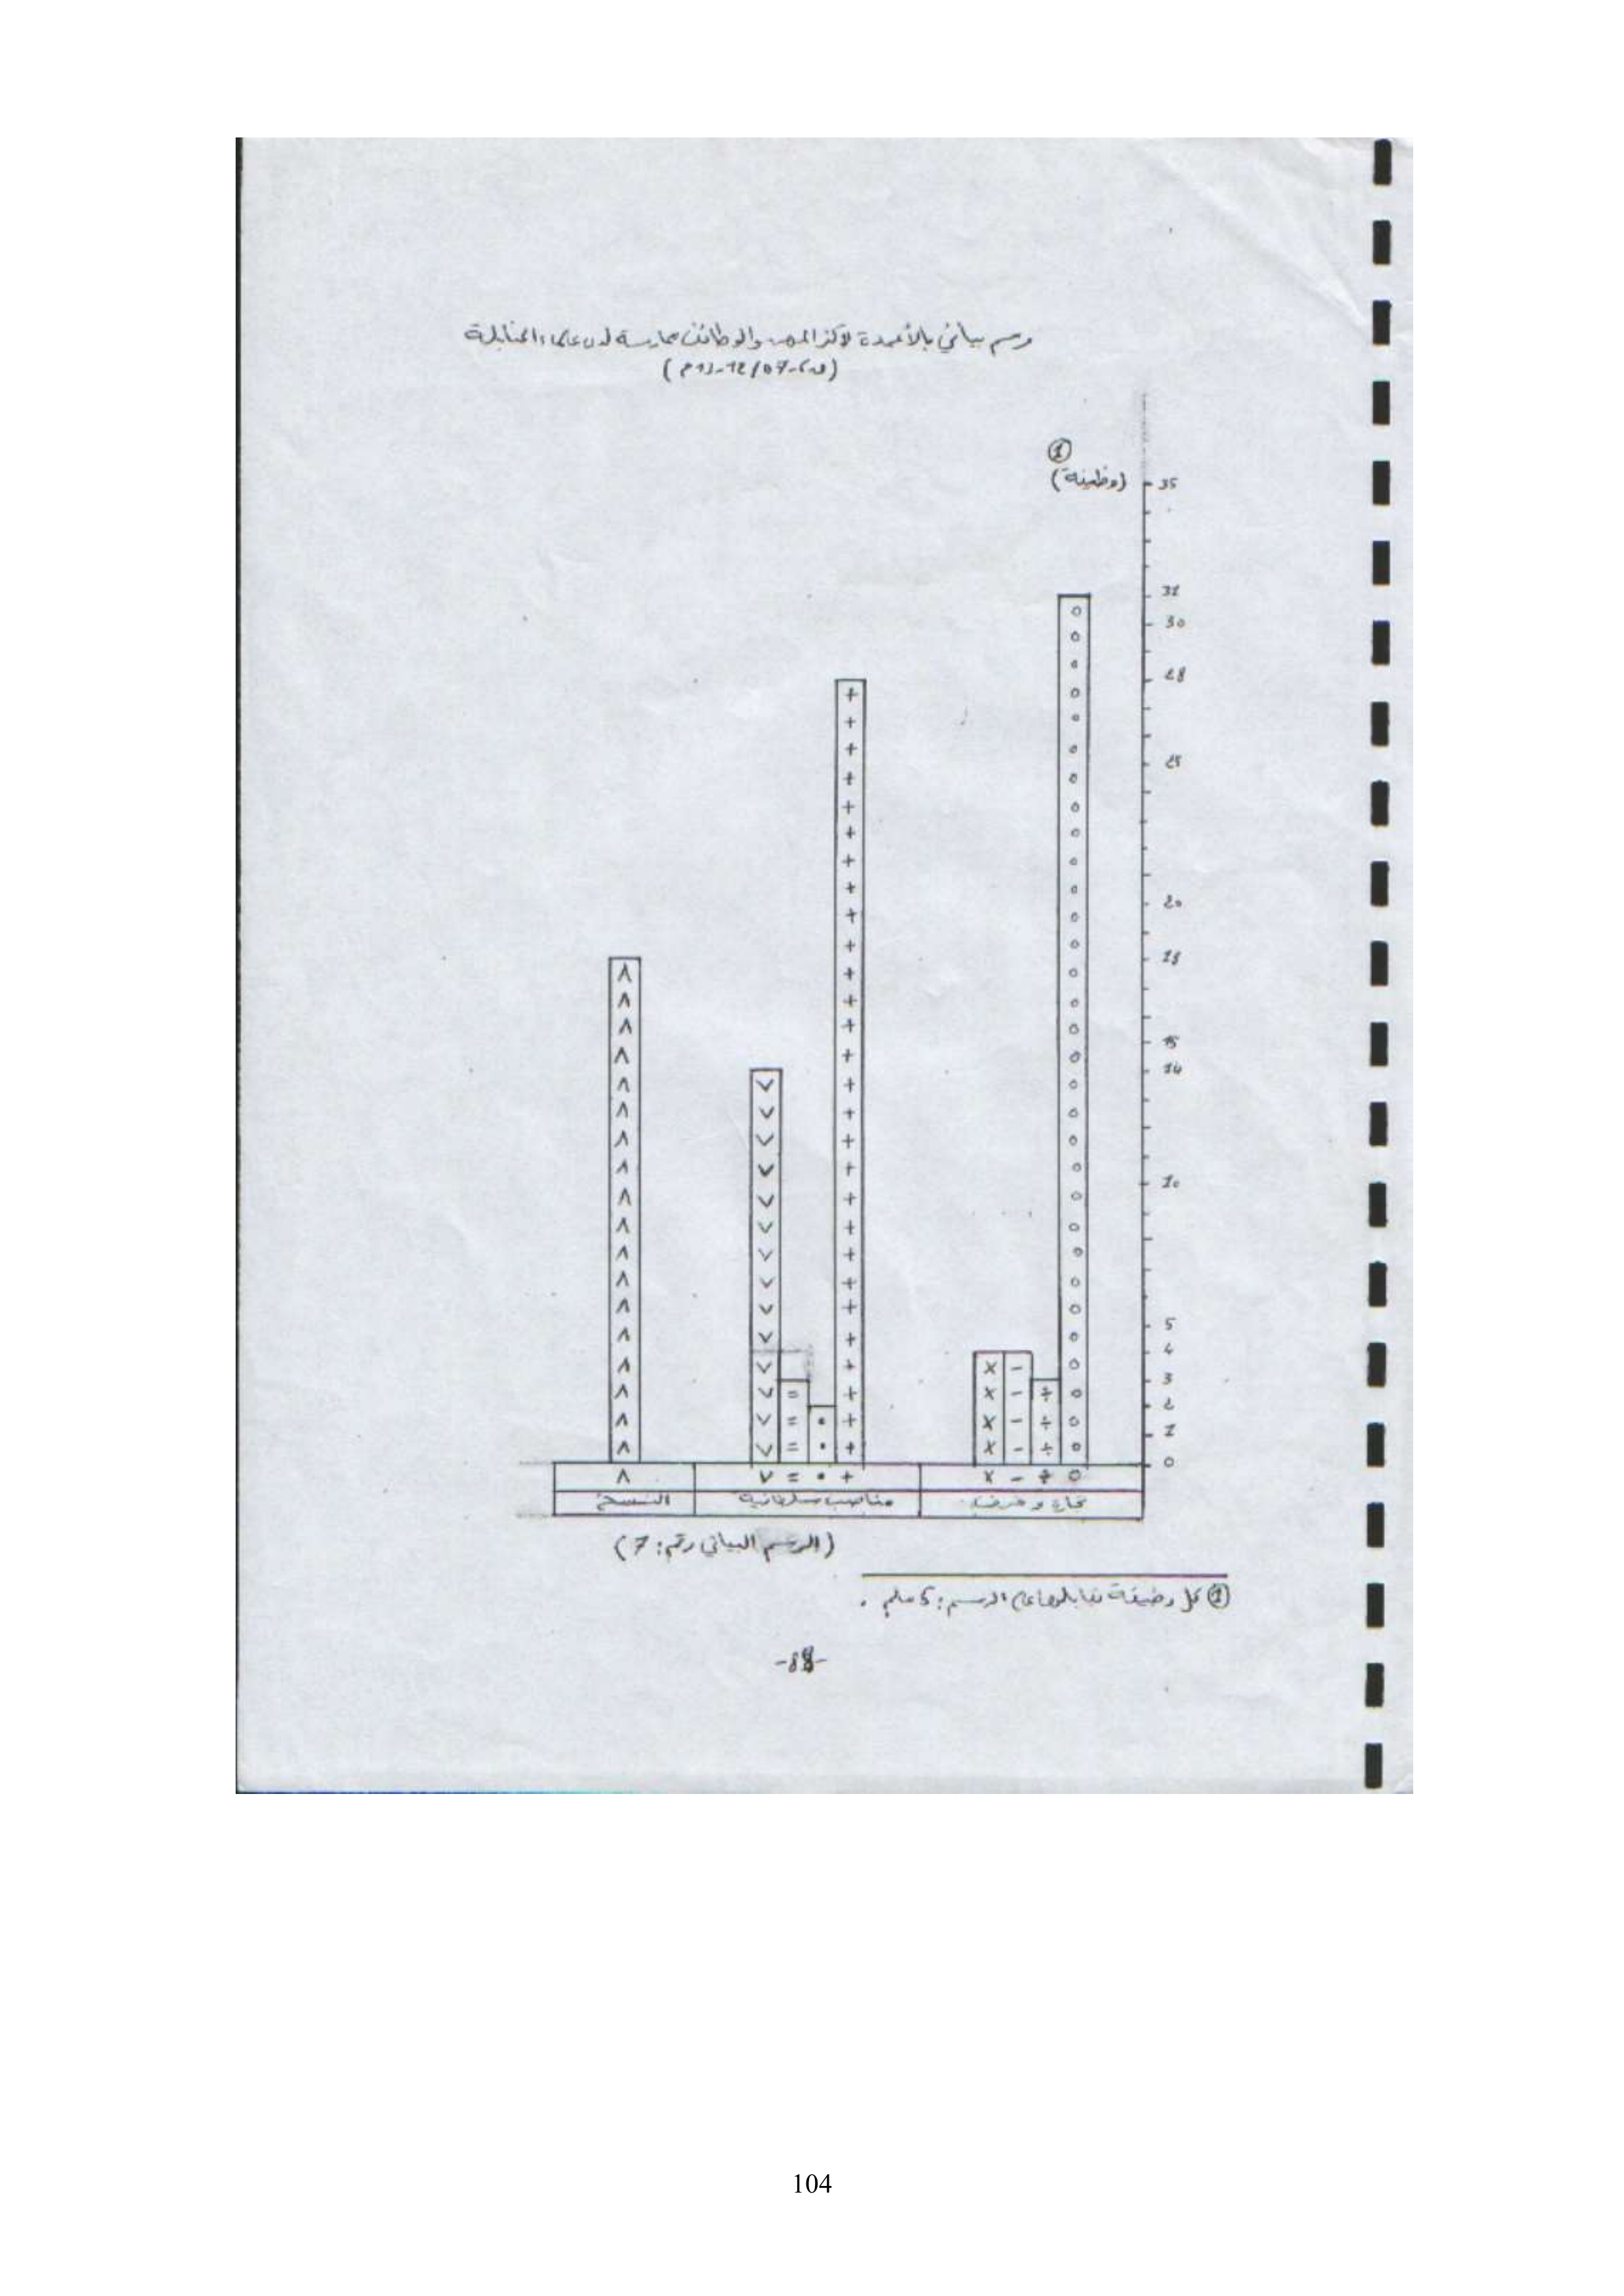 رسم بياني بالأعمدة لأكثر المهن والوظائف ممارسة لدى علماء الحنابلة
①
(وظيفة)
35
31
30
28
25
20
18
15
14
10
5
4
3
2
1
0
○ ÷ − × + • = ∨ ∧
تجارة وحرف مناصب سلطانية النسخ
(الرسم البياني رقم: 7)
① كل وظيفة تقابلها على الرسم: 5 ملم .
104